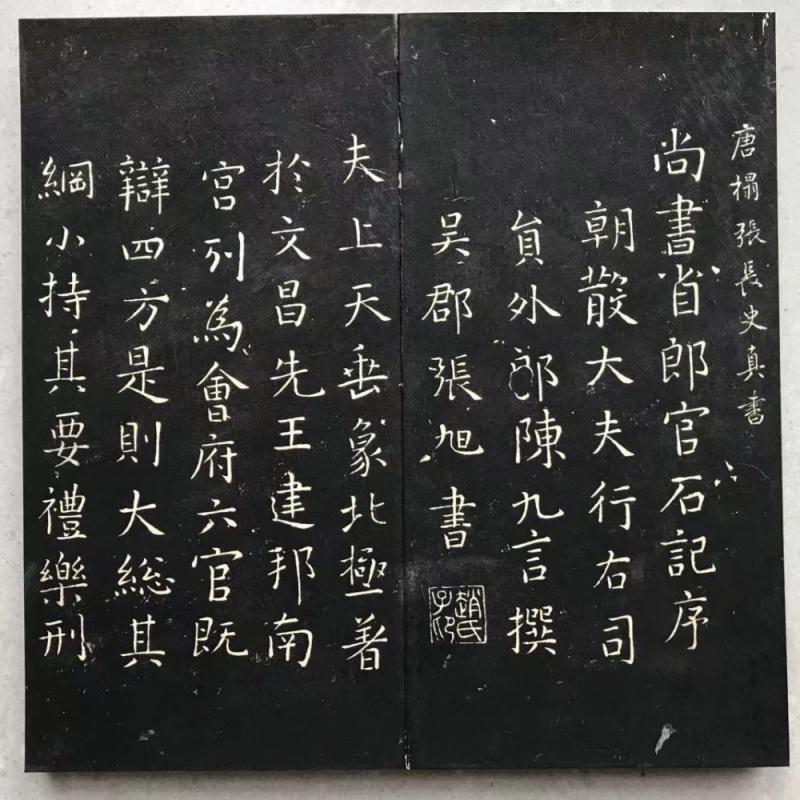 唐搨張長史真書
尚書省郎官石記序
朝散大夫行右司
員外郎陳九言撰
吳郡張旭書
趙氏子印
夫上天垂象北極著
於文昌先王建邦南
宮列為會府六官既
辯四方是則大總其
綱小持其要禮樂刑